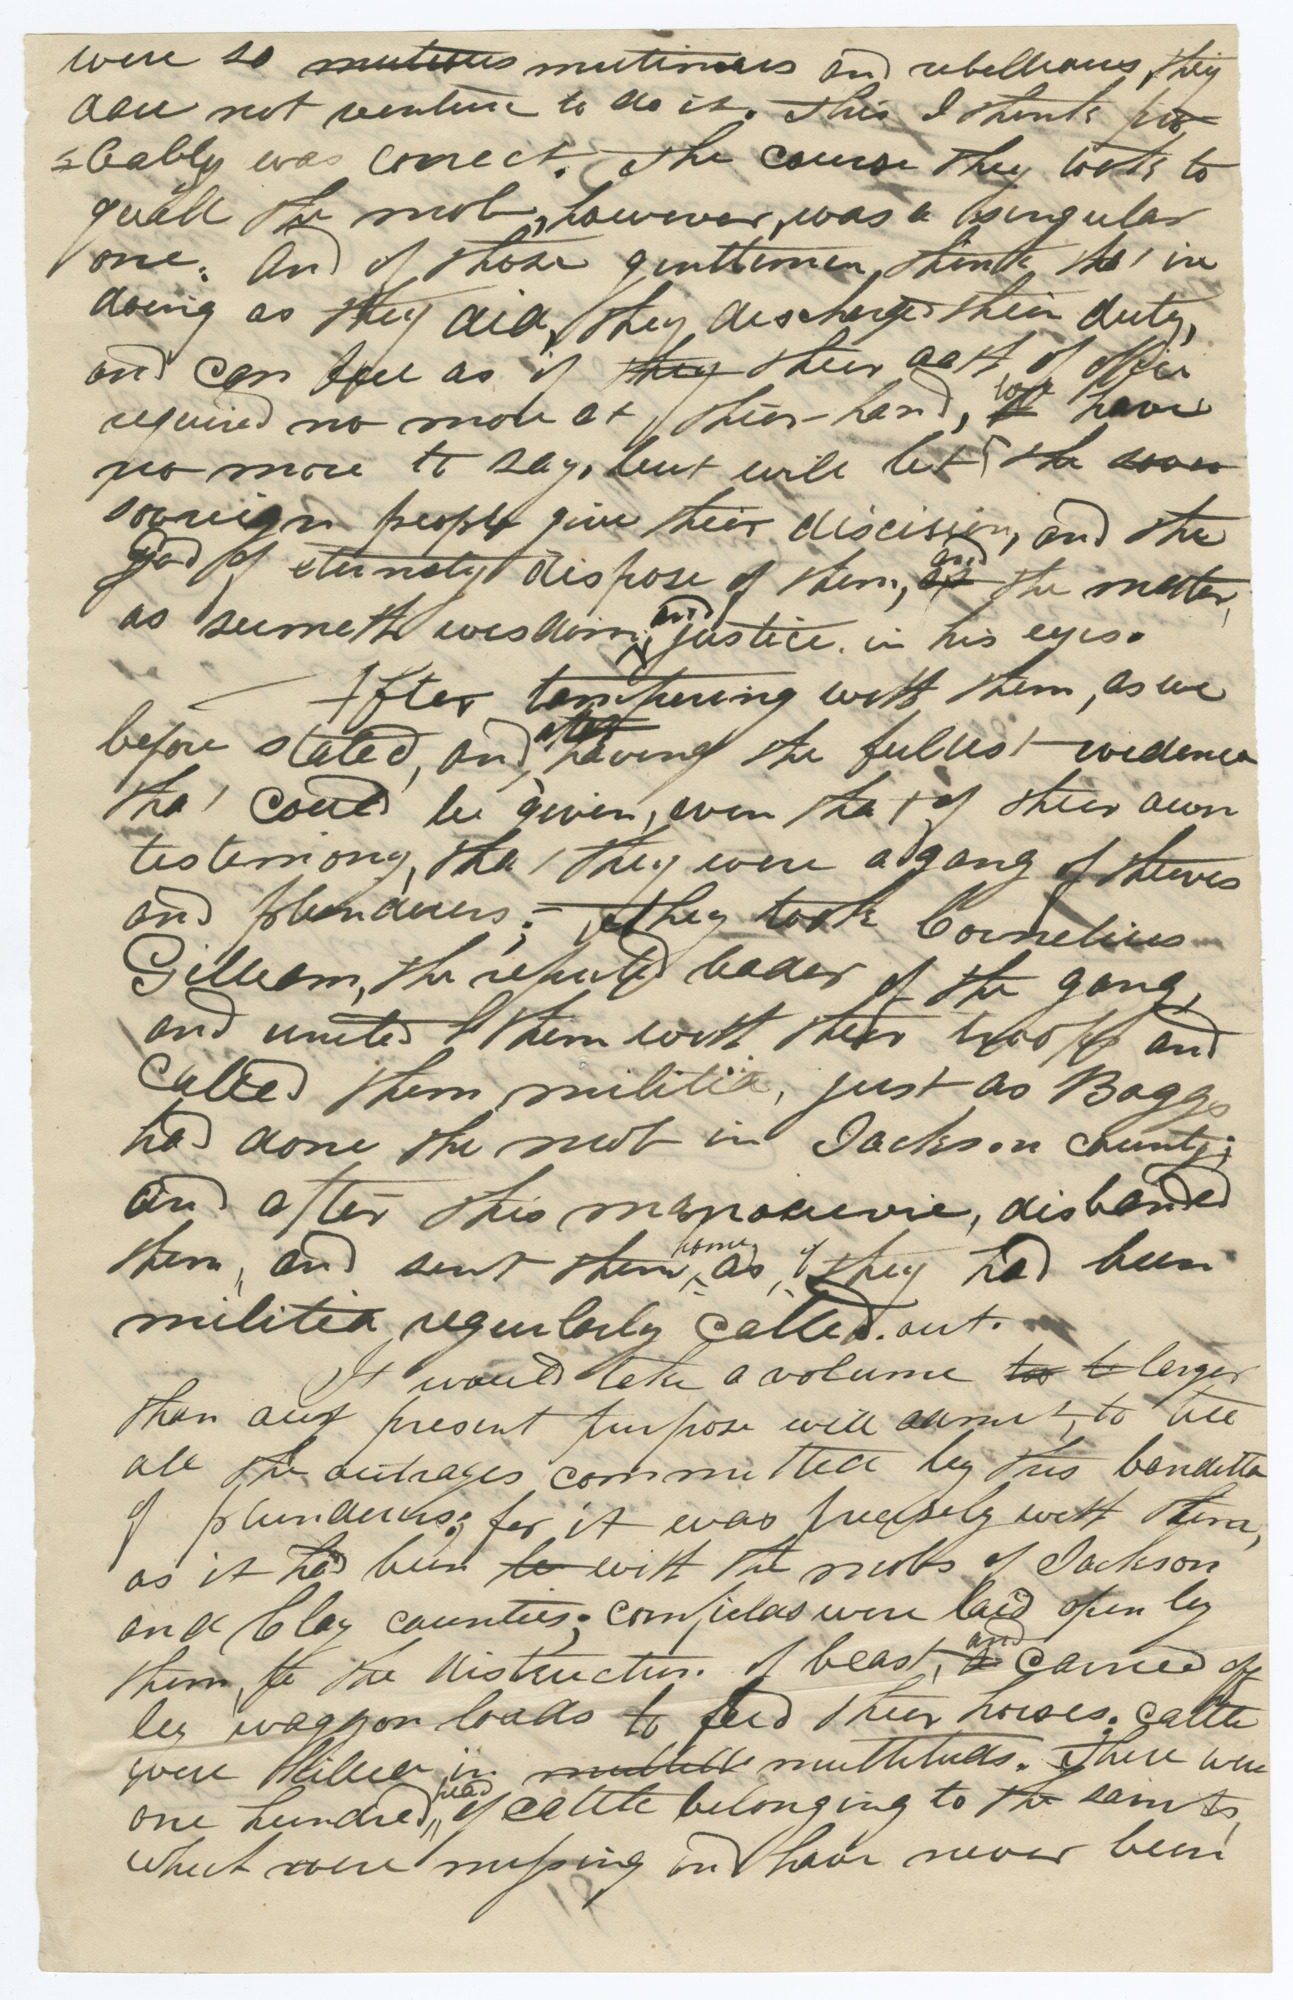 were so mutinous mutinous and rebellious, they
dare not venture to do it. This I think pro
=bably was correct. The course they took to
quell the mob, however, was a singular
one. and if those gentlemen, think that in
doing as they did, they discharged their duty,
and can feel as if they their oath of office
required no more at their hand, I have
no more to say, but will let the sover
sovreign people give their discission, and the
God of eternety dispose of them, and the matter,
as seemeth wisdom, and justice in his eyes.
After tampering with them, as we
before stated, and, after having the fullest evidence
that could be given, even that of their own
testemony, that they were a gang of theives
and plunderers; They took Cornelius
Gilleam, the reputed leader of the gang,
and united them with their troops and
Called them militia, just as Boggs
had done the mob in Jackson county;
and after this manoeuvre, disbanded
them, and sent them home, as if they had been
militia regularly called out.
It would take a volume larger
than our present purpose will admit, to tell
all the outrages committed by this bandetta
of plunderers; for it was precisely with them,
as it had been with the mobs of Jackson
and Clay counties; cornfields were laid open by
them, to the distruction of beast, and carried off
by waggon loads to feed their horses. cattle
were killed in multitude multitudes. There were
one hundred head of cattle belonging to the saints,
which were missing and have never been